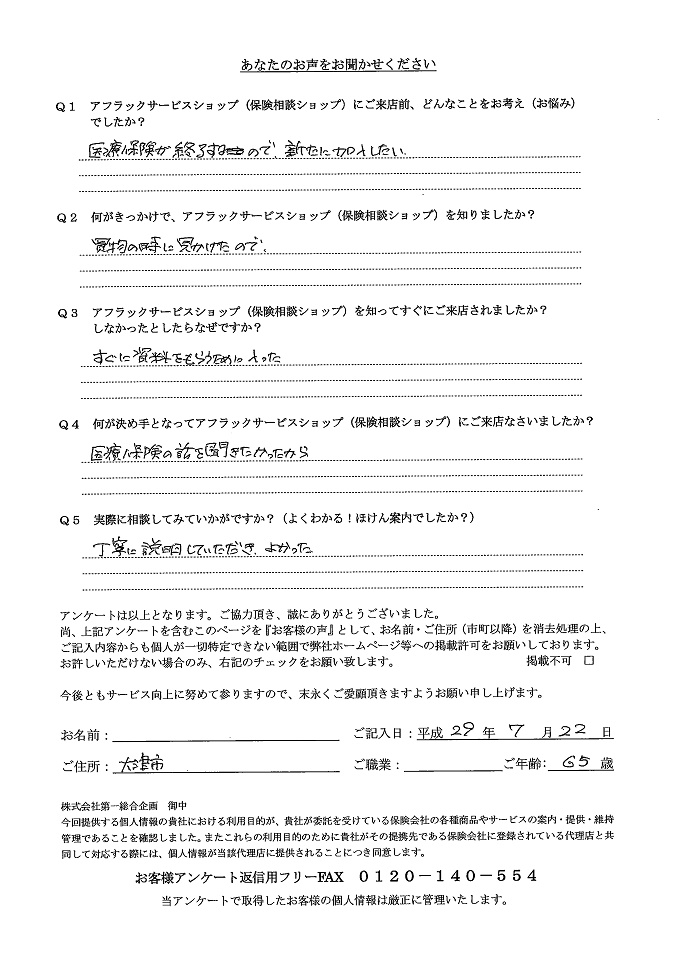 あなたのお声をお聞かせください
Q1 アフラックサービスショップ（保険相談ショップ）にご来店前、どんなことをお考え（お悩み）
でしたか？
医療保険が終了するので、新たに加入したい。
Q2 何がきっかけで、アフラックサービスショップ（保険相談ショップ）を知りましたか？
買物の時に見かけたので。
Q3 アフラックサービスショップ（保険相談ショップ）を知ってすぐにご来店されましたか？
しなかったとしたらなぜですか？
すぐに資料をもらうために入った
Q4 何が決め手となってアフラックサービスショップ（保険相談ショップ）にご来店なさいましたか？
医療保険の話を聞きたかったから
Q5 実際に相談してみていかがですか？（よくわかる！ほけん案内でしたか？）
丁寧に説明していただき、よかった
アンケートは以上となります。ご協力頂き、誠にありがとうございました。
尚、上記アンケートを含むこのページを『お客様の声』として、お名前・ご住所（市町以降）を消去処理の上、
ご記入内容からも個人が一切特定できない範囲で弊社ホームページ等への掲載許可をお願いしております。
お許しいただけない場合のみ、右記のチェックをお願い致します。 掲載不可 □
今後ともサービス向上に努めて参りますので、末永くご愛顧頂きますようお願い申し上げます。
お名前： ご記入日：平成 29 年 7 月 22 日
ご住所： 大津市 ご職業： ご年齢： 65 歳
株式会社第一総合企画 御中
今回提供する個人情報の貴社における利用目的が、貴社が委託を受けている保険会社の各種商品やサービスの案内・提供・維持
管理であることを確認しました。またこれらの利用目的のために貴社がその提携先である保険会社に登録されている代理店と共
同して対応する際には、個人情報が当該代理店に提供されることにつき同意します。
お客様アンケート返信用フリーFAX 0120－140－554
当アンケートで取得したお客様の個人情報は厳正に管理いたします。